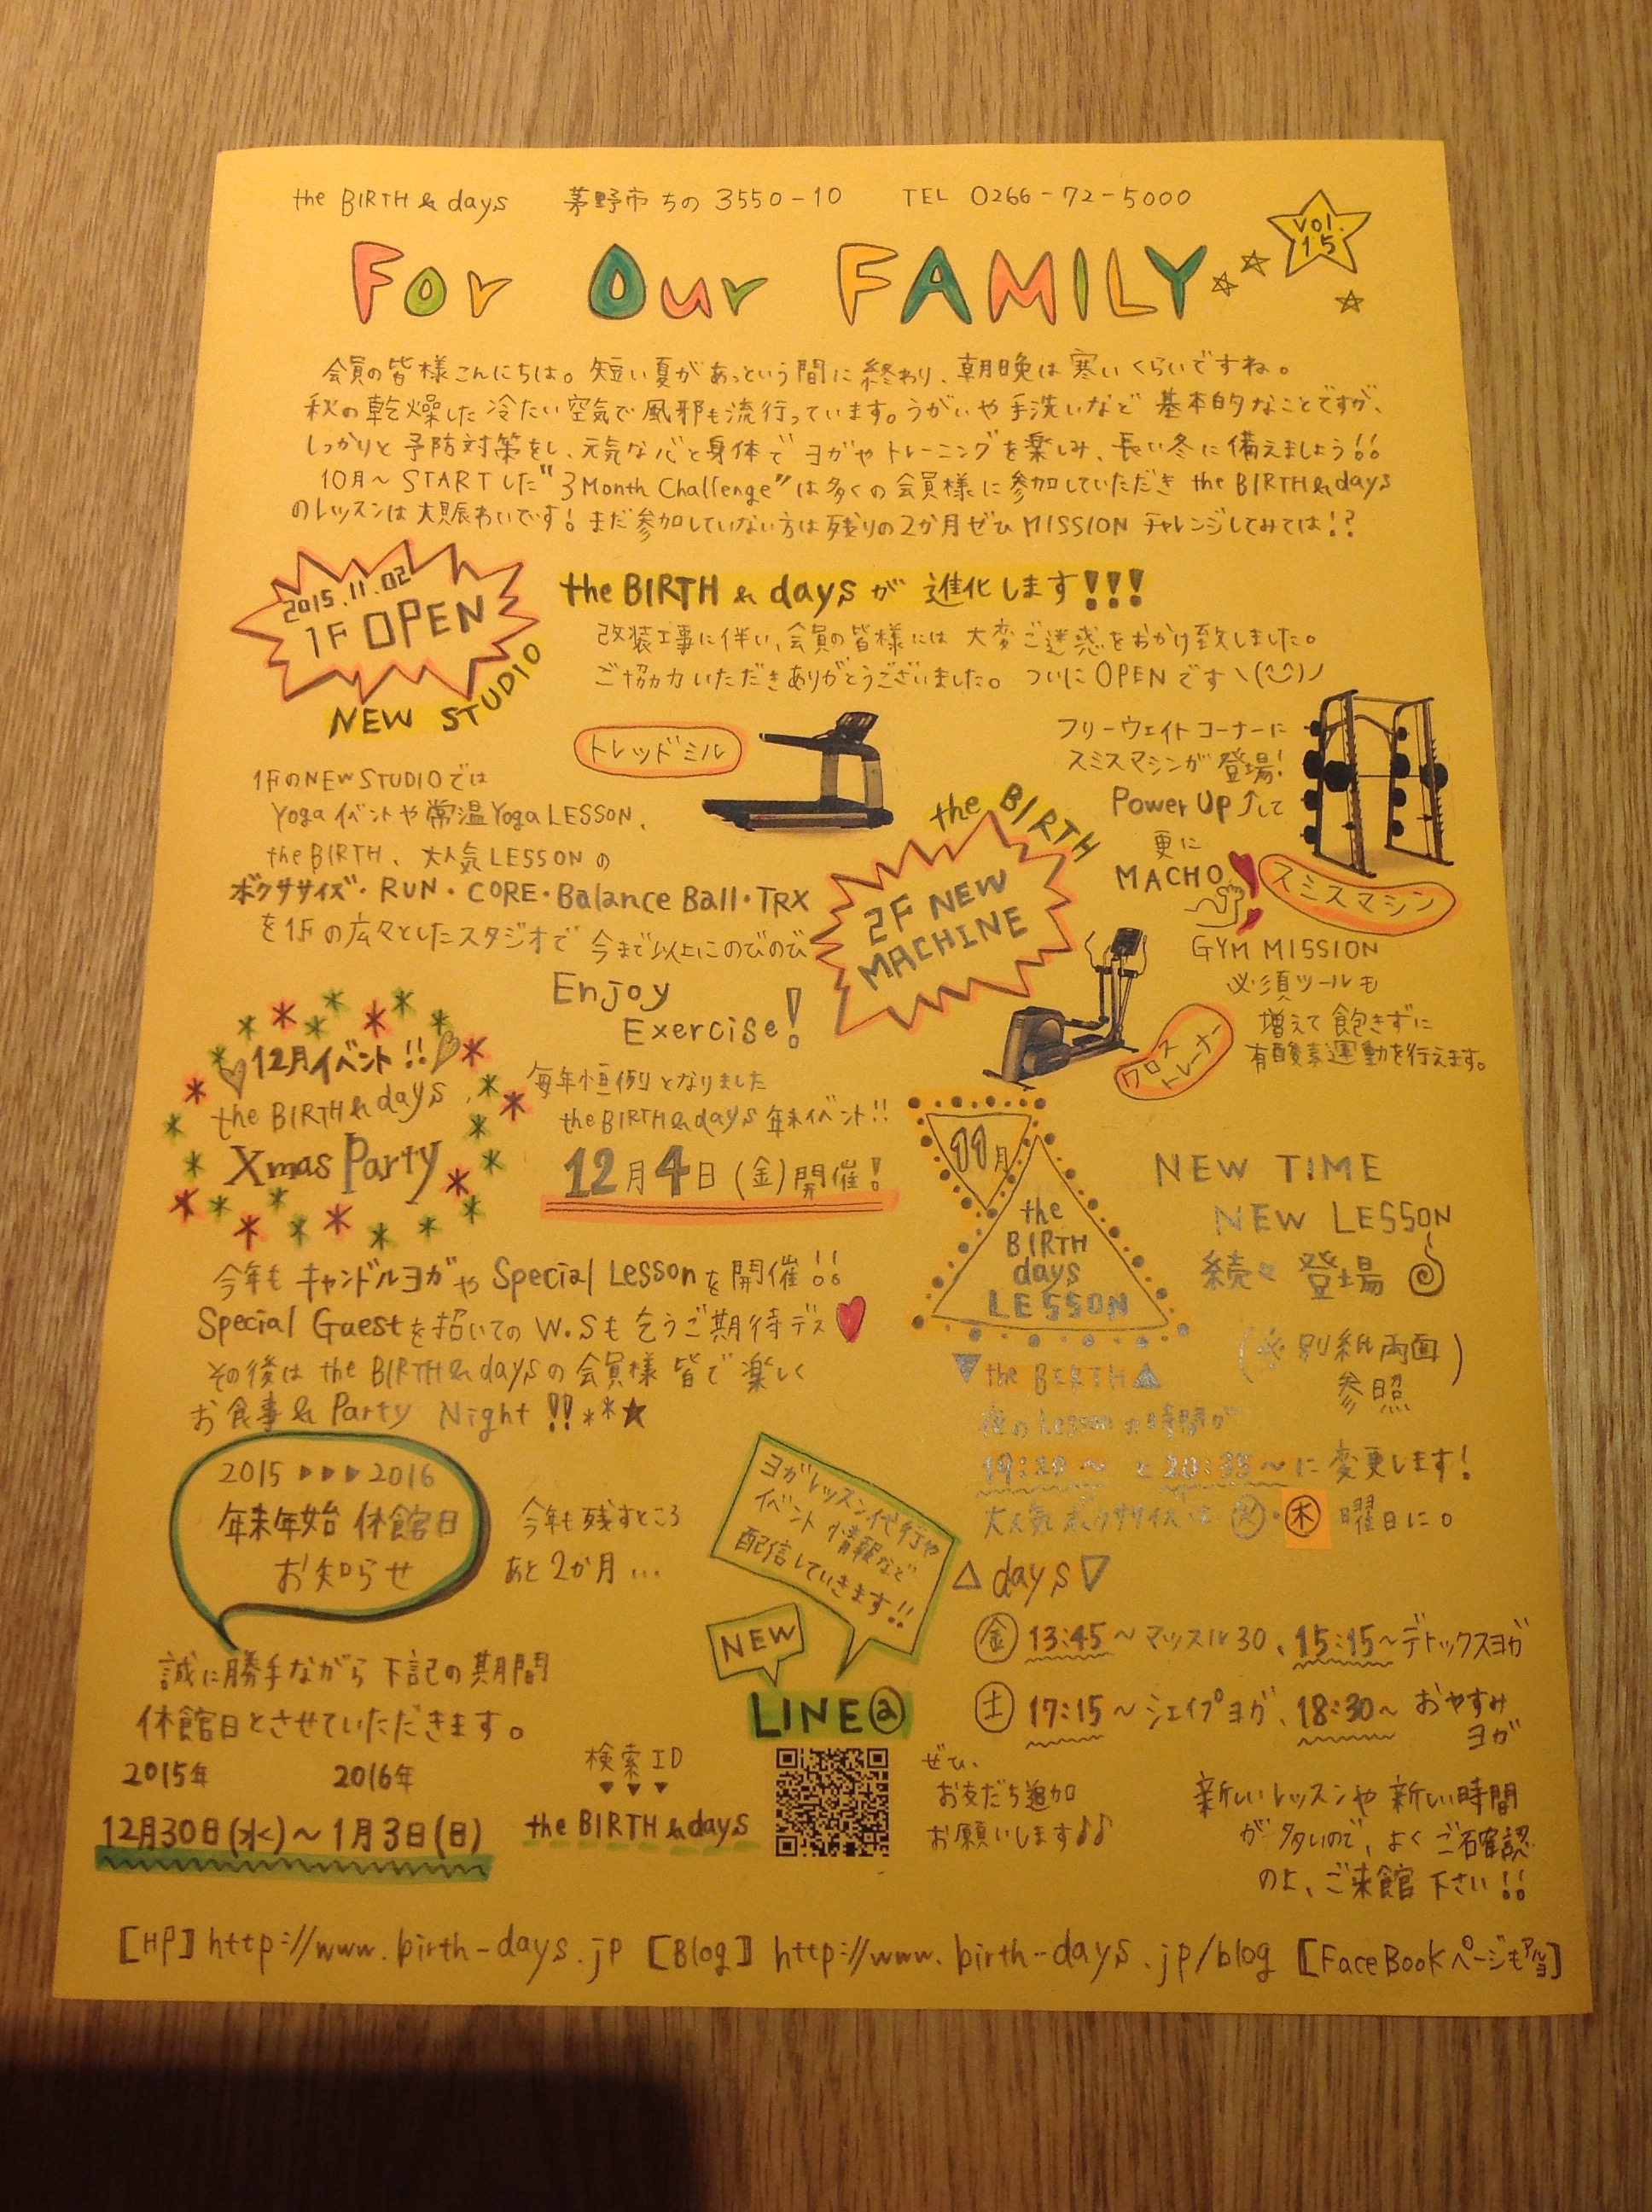 the BIRTH & days 茅野市ちの3550-10 TEL 0266-72-5000
For Our FAMILY
vol. 15
会員の皆様こんにちは。短い夏があっという間に終わり、朝晩は寒いくらいですね。
秋の乾燥した冷たい空気で風邪も流行っています。うがいや手洗いなど基本的なことですが、
しっかりと予防対策をし、元気な心と身体でヨガやトレーニングを楽しみ、長い冬に備えましょう!!
10月〜STARTした"3Month Challenge"は多くの会員様に参加していただき the BIRTH&days
のレッスンは大賑わいです!まだ参加していない方は残りの2か月ぜひMISSION チャレンジしてみては!?
2015.11.02
1F OPEN
NEW STUDIO
the BIRTH & days が進化します!!!
改装工事に伴い、会員の皆様には大変ご迷惑をおかけ致しました。
ご協力いただきありがとうございました。ついにOPENです
トレッドミル
1FのNEW STUDIOでは
Yogaイベントや常温Yoga LESSON、
the BIRTH、大人気LESSONの
ボクササイズ・RUN・CORE・Balance Ball・TRX
を1Fの広々としたスタジオで今まで以上にのびのび
Enjoy
Exercise!
the BIRTH
2F NEW
MACHINE
フリーウェイトコーナーに
スミスマシンが登場!
Power Up↑して
更に
MACHO
スミスマシン
GYM MISSION
必須ツールも
増えて飽きずに
有酸素運動を行えます。
クロス
トレーナー
12月イベント!!
the BIRTH & days
Xmas Party
毎年恒例となりました
the BIRTH&days 年末イベント!!
12月4日(金)開催!
今年もキャンドルヨガやSpecial Lessonを開催!!
Special Guestを招いてのW.Sも乞うご期待デス
その後は the BIRTH&daysの会員様皆で楽しく
お食事& Party Night!!**★
11月
the
BIRTH
days
LESSON
NEW TIME
NEW LESSON
続々登場
(※別紙両面
参照)
▼the BIRTH▲
夜のLessonの時間が
19:20〜 と20:35〜に変更します!
大人気ボクササイズは㊋・㊍曜日に。
△days▽
㊎13:45〜マッスル30、15:15〜デトックスヨガ
㊏17:15〜シェイプヨガ、18:30〜おやすみ
ヨガ
新しいレッスンや新しい時間
が多いので、よくご確認
の上、ご来館下さい!!
2015▶▶▶2016
年末年始 休館日
お知らせ
今年も残すところ
あと2か月...
誠に勝手ながら下記の期間
休館日とさせていただきます。
2015年 2016年
12月30日(水)〜1月3日(日)
ヨガレッスン代行や
イベント情報など
配信していきます!!
NEW
LINE@
検索ID
▼▼▼
the BIRTH & days
ぜひ、
お友だち追加
お願いします♪♪
[HP]http://www.birth-days.jp [Blog] http://www.birth-days.jp/blog [FaceBookページもアルヨ]